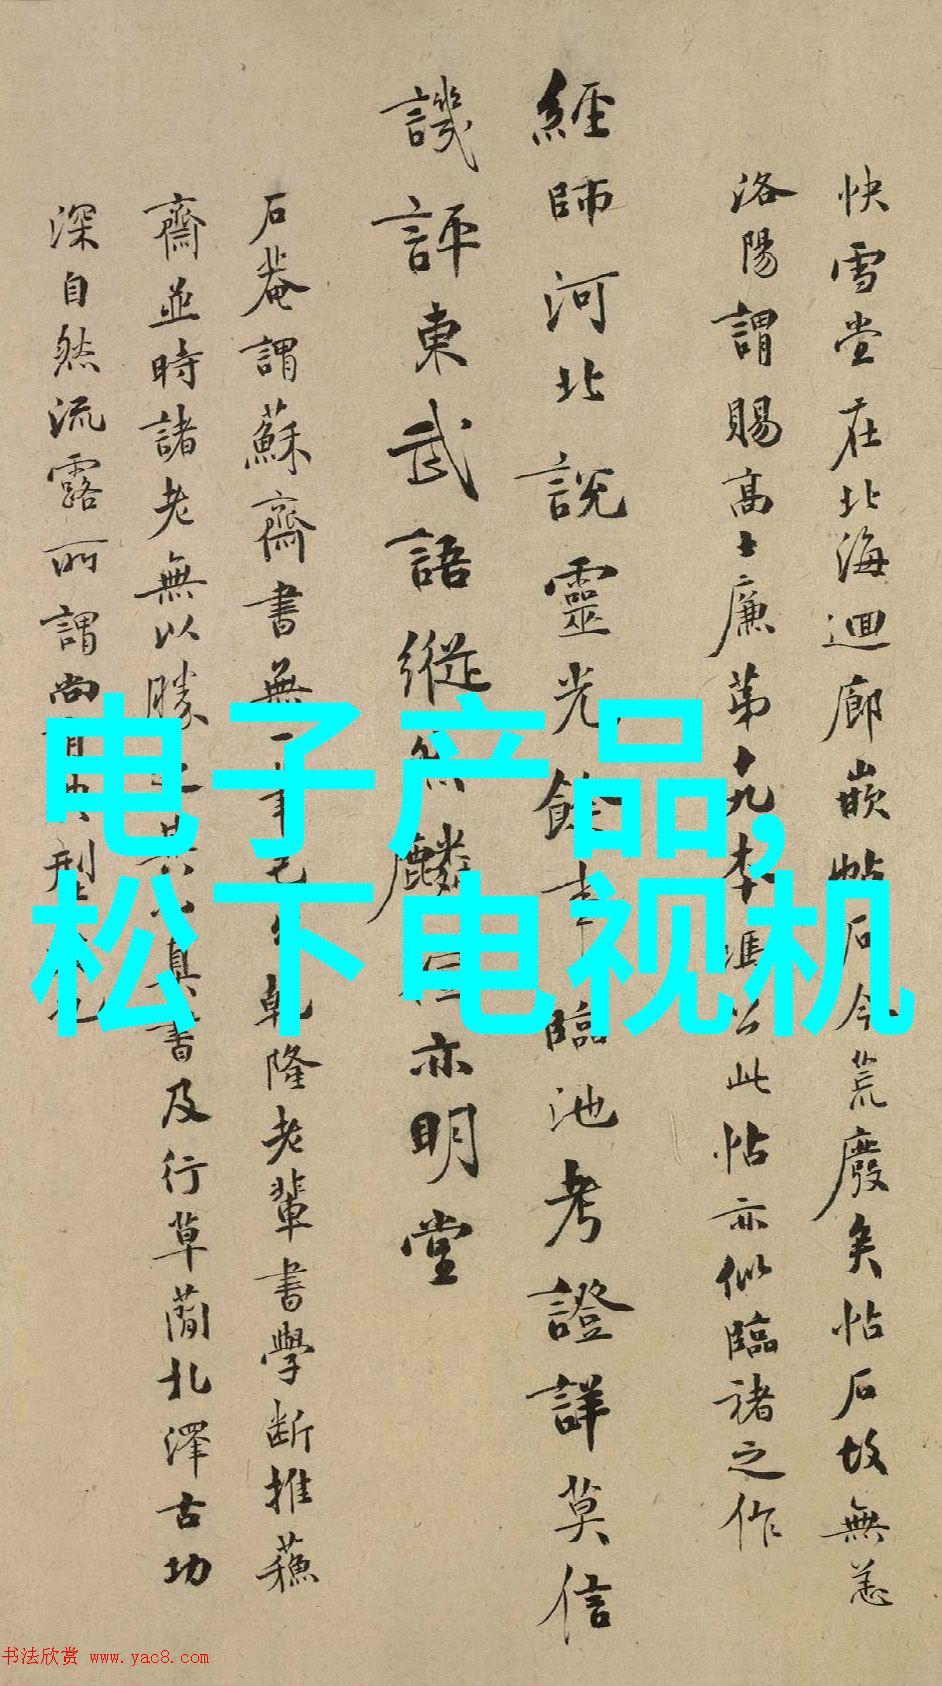 快雪堂在北海迴廊嵌帖石今荒廢矣帖石故無恙
洛陽謂賜高士廉第十九李馮公此帖亦似臨褚之作
經師河北說靈光餘事臨池考證詳莫信
譏評東武語縱然麟亦明堂
石菴謂蘇齋書無一筆乾隆老輩書學斷推蘇
齋並時諸老無以勝真書及行草蘭北澤古功
深自然流露所謂尚
电子产品,
松下电视机
书法欣赏 www.yac8.com